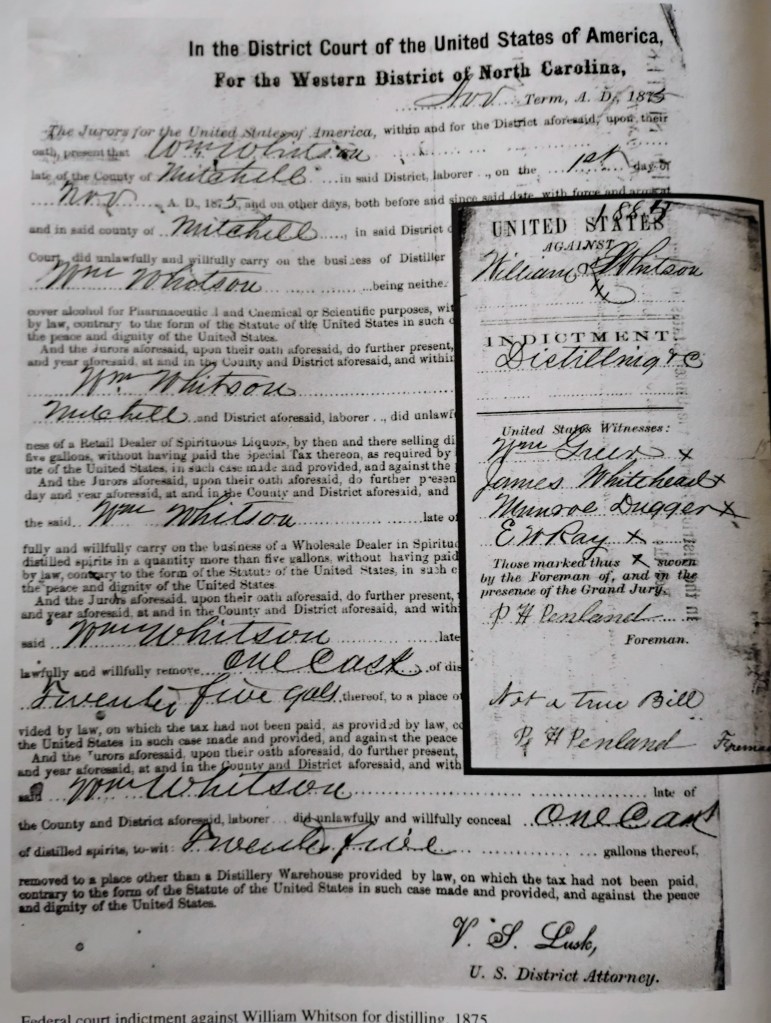 In the District Court of the United States of America,
For the Western District of North Carolina,
Nov Term, A. D. 1875
The Jurors for the United States of America, within and for the District aforesaid, upon their
oath, present that Wm Whitson
late of the County of Mitchell in said District, laborer .., on the 1st day of
Nov A. D. 1875, and on other days, both before and since said date, with force and arms at
and in said county of Mitchell, in said District
Court, did unlawfully and willfully carry on the business of Distiller
Wm Whitson being neithe
cover alcohol for Pharmaceutical and Chemical or Scientific purposes, wit
by law, contrary to the form of the Statute of the United States in such c
the peace and dignity of the United States.
And the Jurors aforesaid, upon their oath aforesaid, do further present,
and year aforesaid, at and in the County and District aforesaid, and within
Wm Whitson
Mitchell and District aforesaid, laborer .., did unlawf
ness of a Retail Dealer of Spirituous Liquors, by then and there selling di
five gallons, without having paid the Special Tax thereon, as required by
ute of the United States, in such case made and provided, and against the
And the Jurors aforesaid, upon their oath aforesaid, do further presen
day and year aforesaid, at and in the County and District aforesaid, and
the said Wm Whitson late of
fully and willfully carry on the business of a Wholesale Dealer in Spirituo
distilled spirits in a quantity more than five gallons, without having paid
by law, contrary to the form of the Statute of the United States, in such c
the peace and dignity of the United States.
And the Jurors aforesaid, upon their oath aforesaid, do further present,
and year aforesaid, at and in the County and District aforesaid, and with
said Wm Whitson late
lawfully and willfully remove One Cask of dis
Twenty five gals thereof, to a place ot
vided by law, on which the tax had not been paid, as provided by law, co
the United States in such case made and provided, and against the peace
And the Jurors aforesaid, upon their oath aforesaid, do further present,
and year aforesaid, at and in the County and District aforesaid, and with
said Wm Whitson late of
the County and District aforesaid, laborer ... did unlawfully and willfully conceal One Cask
of distilled spirits, to-wit: Twenty five gallons thereof,
removed to a place other than a Distillery Warehouse provided by law, on which the tax had not been paid,
contrary to the form of the Statute of the United States in such case made and provided, and against the peace
and dignity of the United States.
V. S. Lusk,
U. S. District Attorney.
UNITED STATES
AGAINST
William Whitson
INDICTMENT.
Distilling &c
United States Witnesses:
Wm Greer x
James Whitehead x
Munroe Dugger x
E W Ray x
Those marked thus x sworn
by the Foreman of, and in the
presence of the Grand Jury.
P H Penland
Foreman.
Not a True Bill
P H Penland Foreman
Federal court indictment against William Whitson for distilling, 1875